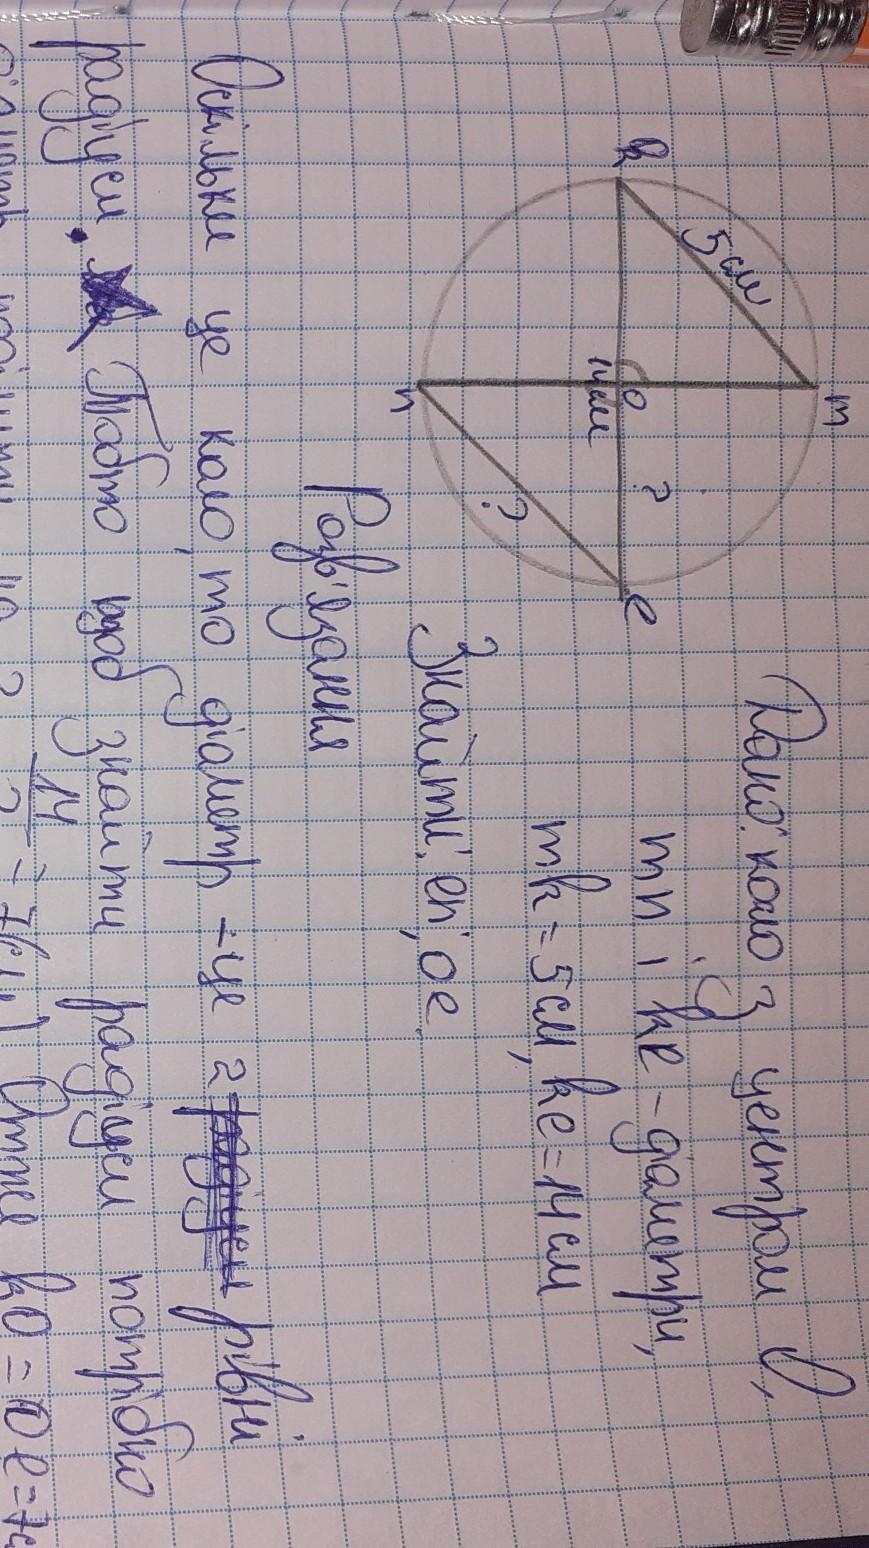 Дано: коло з центром О,
mn і ke - діаметри,
mk = 5 см, ke = 14 см
Знайти: en, oe
k
5 см
m
o
14 см
?
n
?
e
Розв'язання
Оскільки це коло, то діаметр - це 2 рівні
радіуси. Тобто щоб знайти радіуси потрібно
14
2
= 7(см) Отже ko = oe = 7с